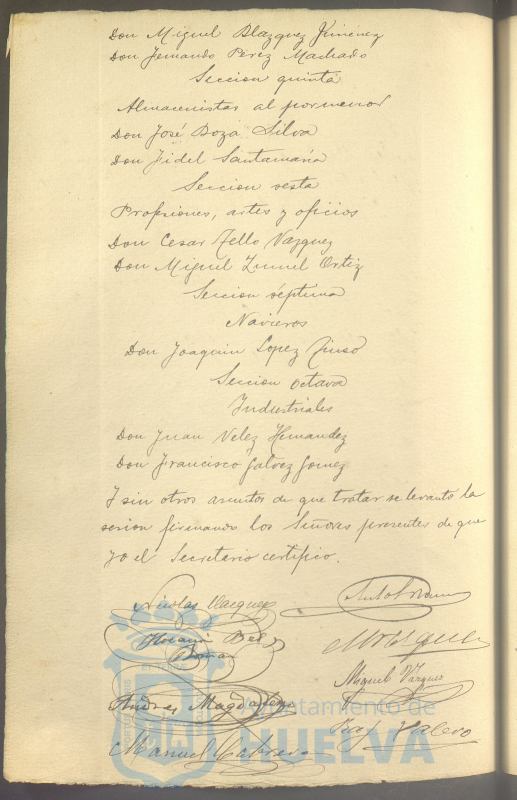 Don Miguel Blazquez Jimenez
Don Fernando Perez Machado
Seccion quinta
Almacenistas al pormenor
Don José Boza Silva
Don Fidel Santamaria
Seccion sexta
Profesiones, artes y oficios
Don Cesar Tello Vazquez
Don Miguel Zunel Ortiz
Seccion séptima
Navieros
Don Joaquin Lopez
Seccion octava
Industriales
Don Juan Velez Hernandez
Don Francisco Galvez Gomez
Y sin otros asuntos de que tratar se levanto la
sesion firmando los Señores presentes de que
yo el Secretario certifico.
Nicolas Vazquez
Horacio Bel
Roman
Miguel Vazquez
Andres Magdaleno
Raf
Manuel Cabrera
Ayuntamiento de
HUELVA